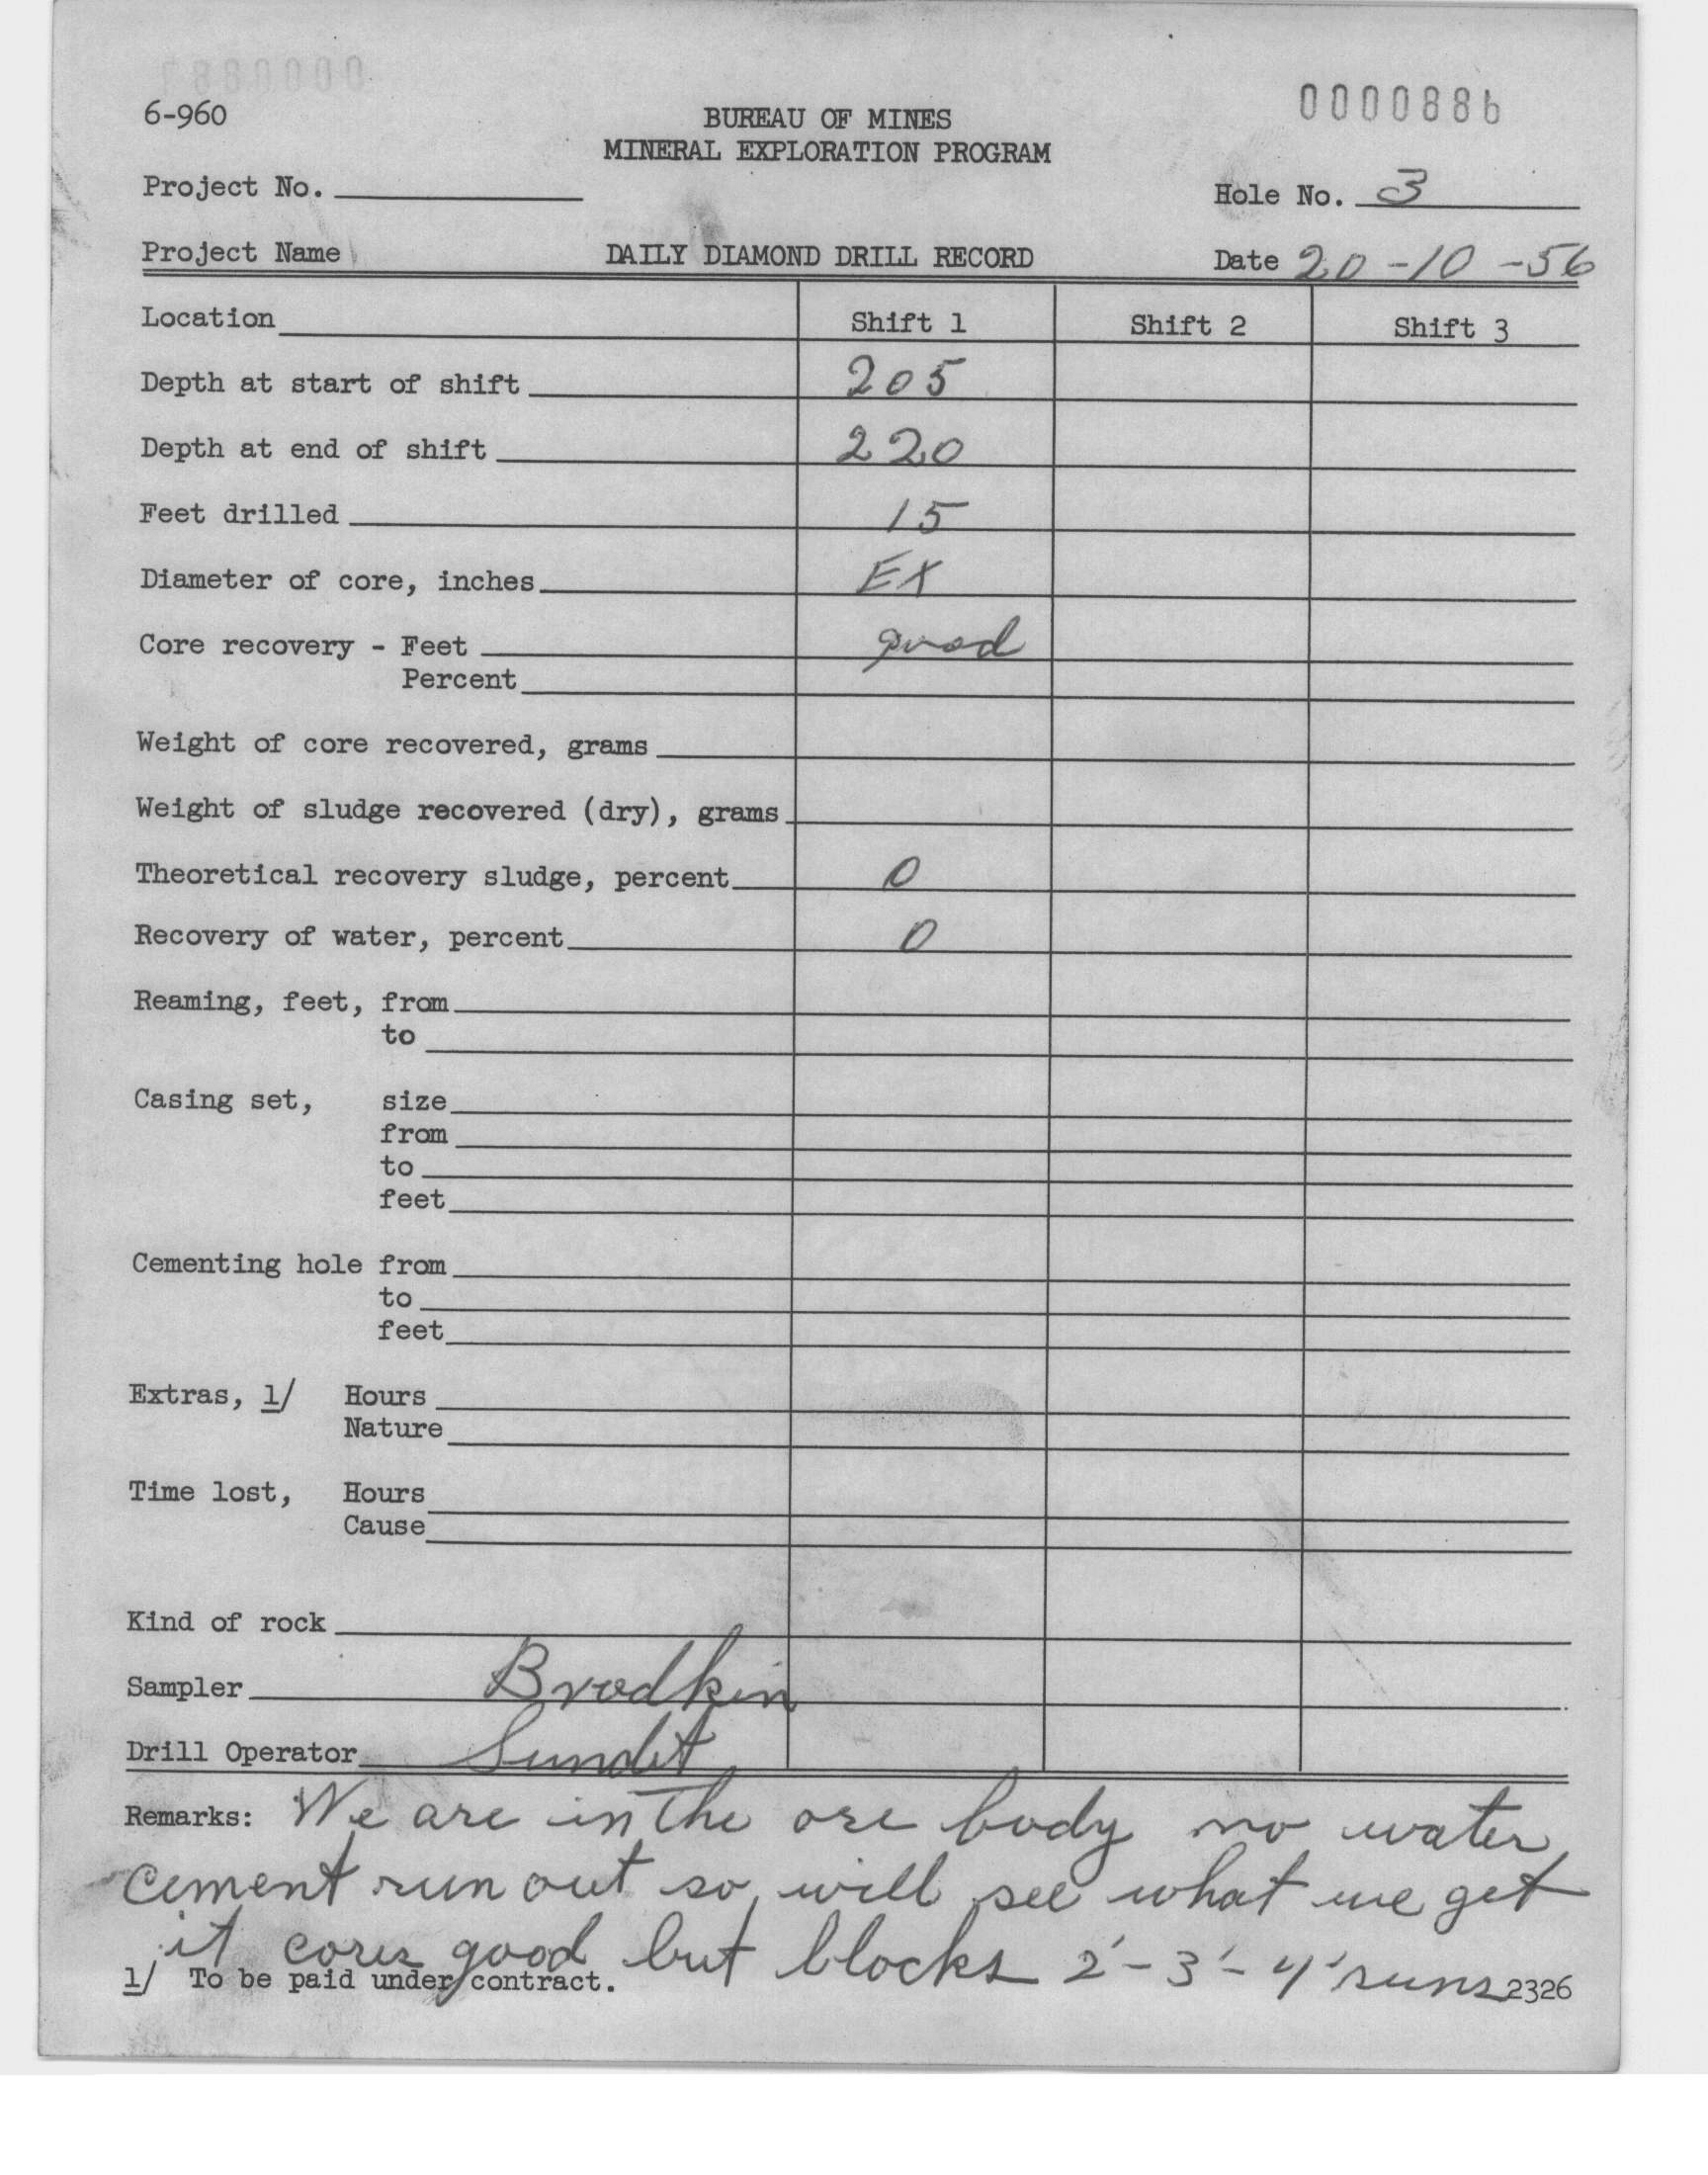 6-960
BUREAU OF MINES
0000886
MINERAL EXPLORATION PROGRAM
Project No.
Hole No. 3
Project Name DAILY DIAMOND DRILL RECORD Date 20-10-56
Location Shift 1 Shift 2 Shift 3
Depth at start of shift 205
Depth at end of shift 220
Feet drilled 15
Diameter of core, inches EX
Core recovery - Feet good
Percent
Weight of core recovered, grams
Weight of sludge recovered (dry), grams
Theoretical recovery sludge, percent 0
Recovery of water, percent 0
Reaming, feet, from
to
Casing set, size
from
to
feet
Cementing hole from
to
feet
Extras, 1/ Hours
Nature
Time lost, Hours
Cause
Kind of rock
Sampler Brodkin
Drill Operator
Remarks: We are in the ore body no water
cement run out so will see what we get
it cores good but blocks 2'-3'-4' runs
1/ To be paid under contract. 2326